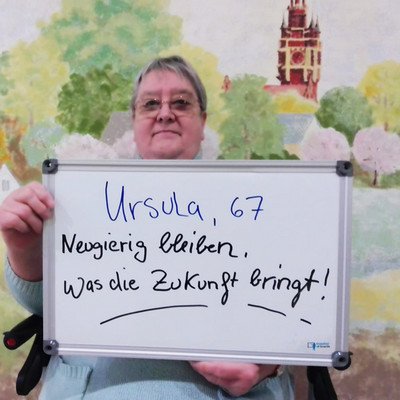 Ursula, 67
Neugierig bleiben,
was die Zukunft bringt!